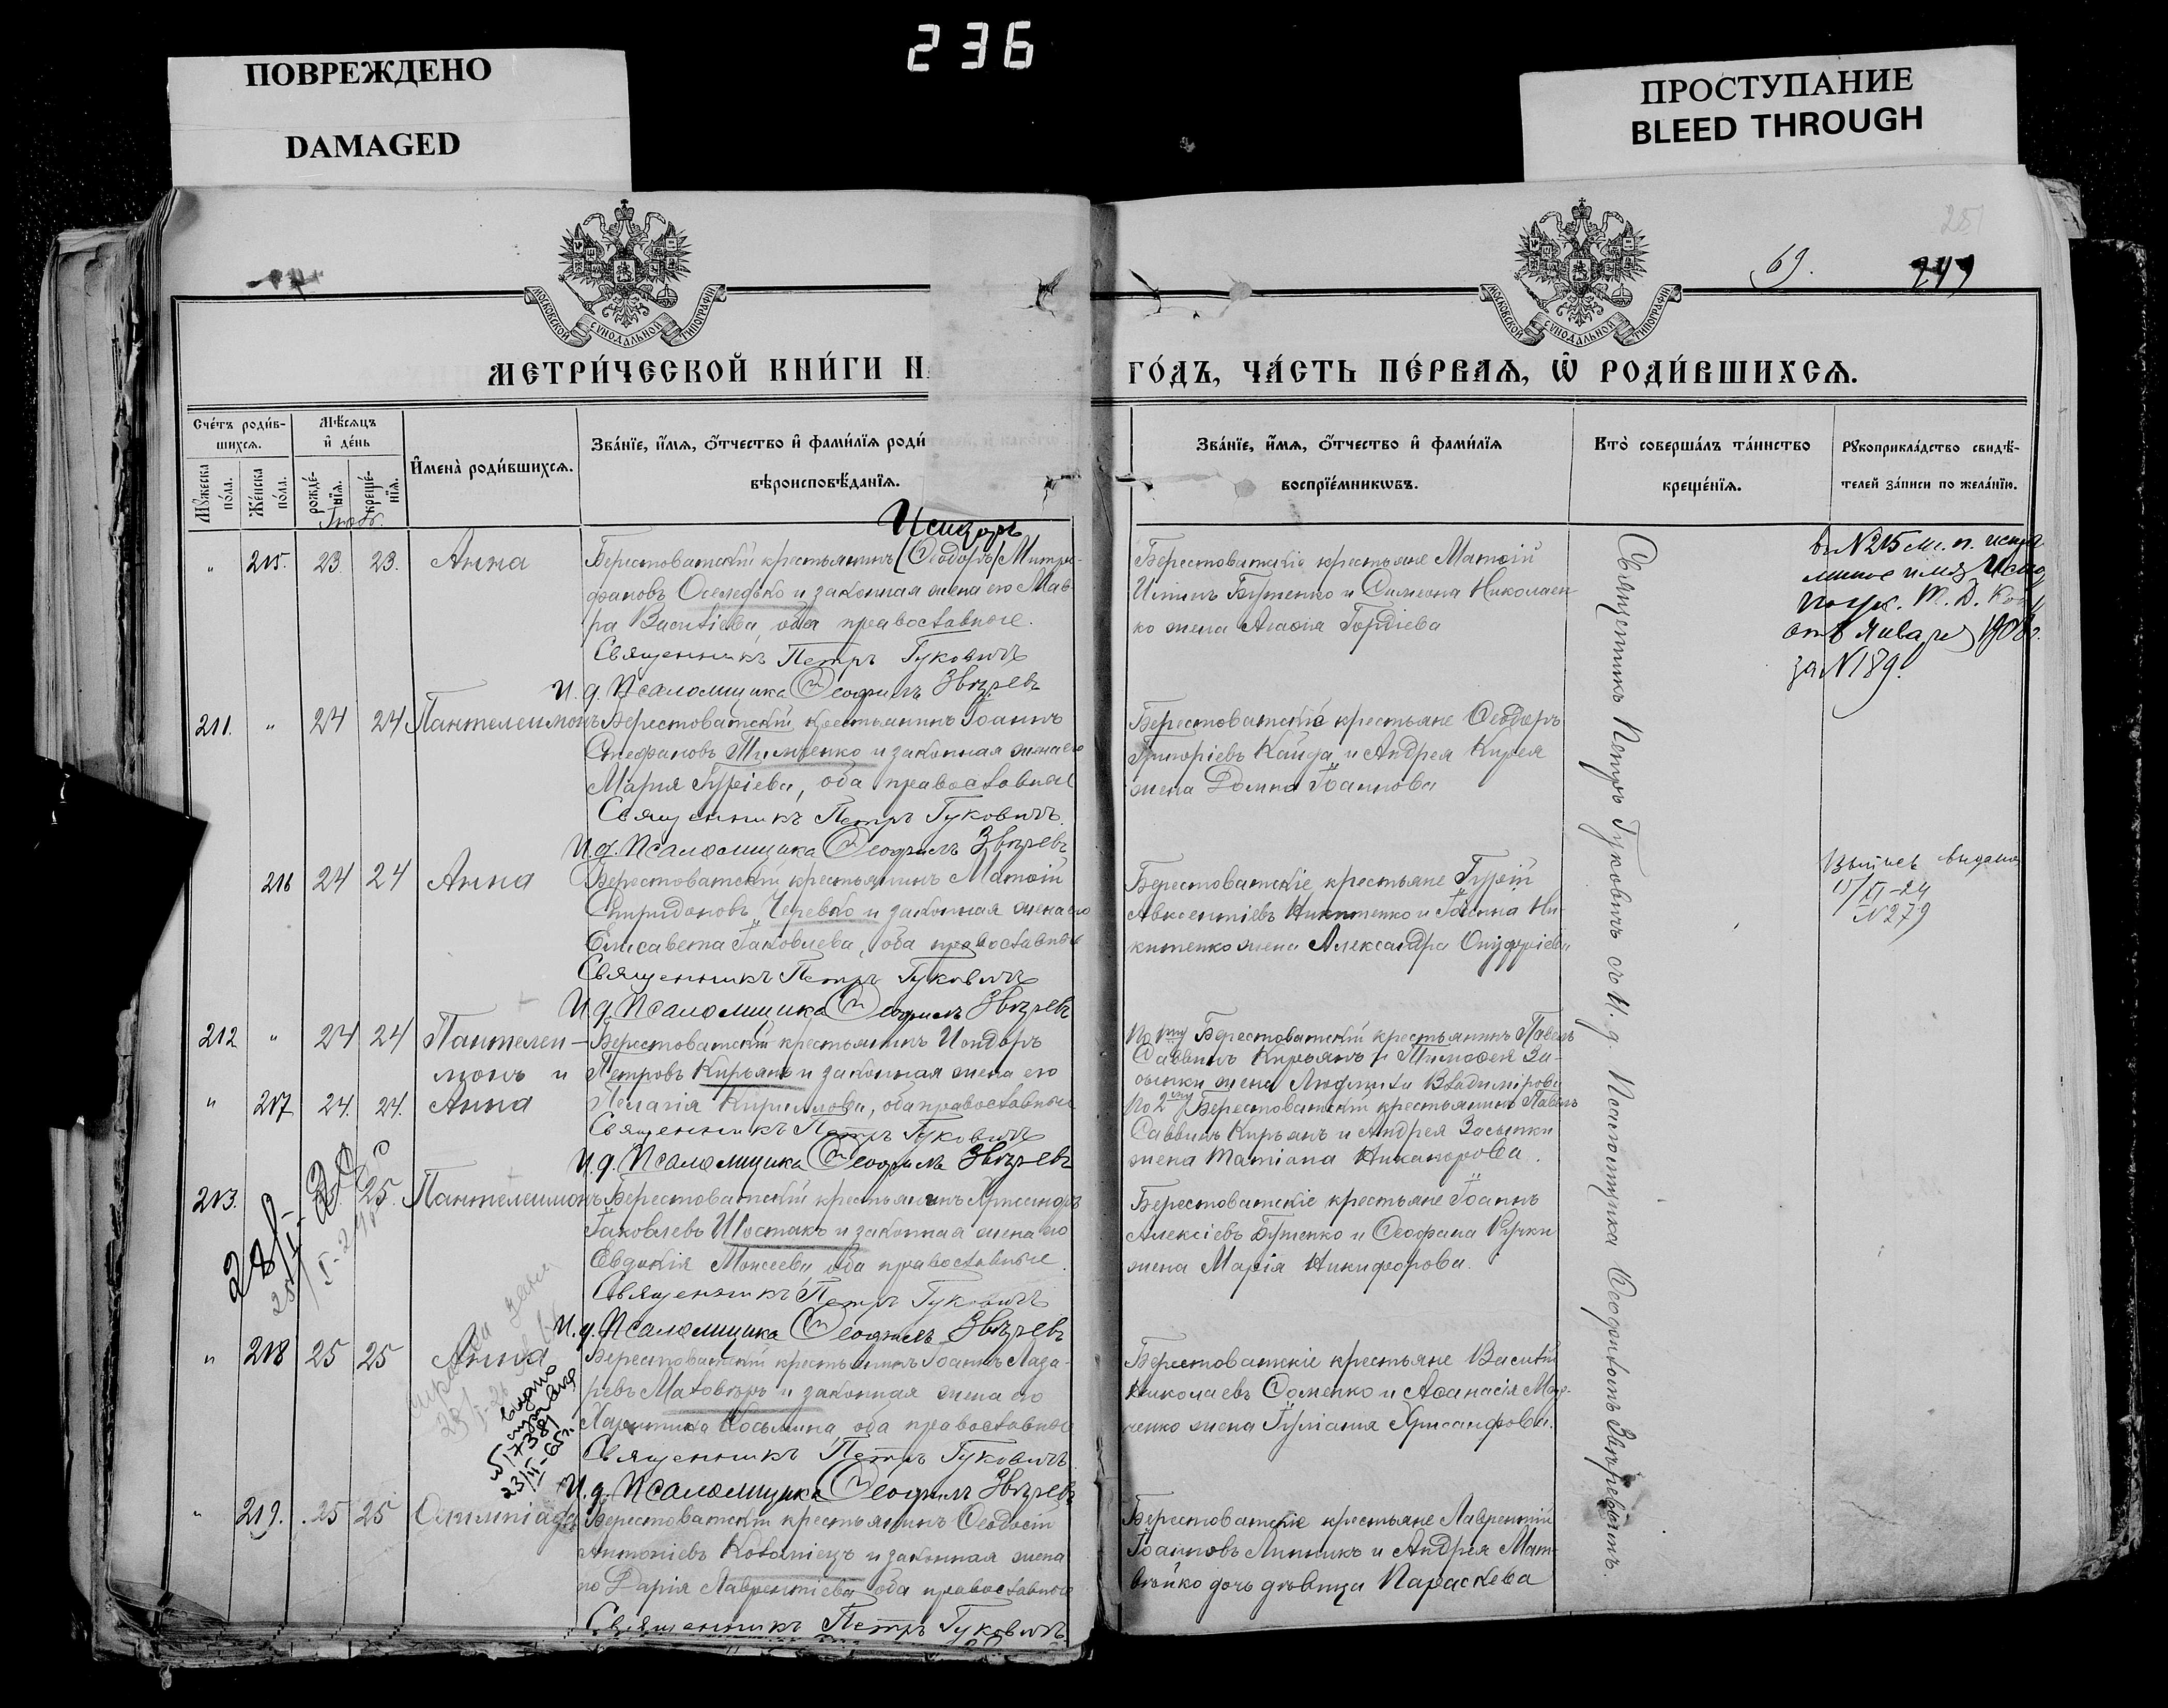 236
ПОВРЕЖДЕНО
DAMAGED
ПРОСТУПАНИЕ
BLEED THROUGH
МОСКОВСКОЙ СѴНОДАЛЬНОЙ ТИПОГРАФІИ
МОСКОВСКОЙ СѴНОДАЛЬНОЙ ТИПОГРАФІИ
69.
МЕТРИ́ЧЕСКОЙ КНИ́ГИ Н
ГО́ДЪ, ЧА́СТЬ ПЕ́РВАѦ, Ѡ РОДИ́ВШИХСѦ.
Сче́тъ роди́в-
шихсѧ.
Мѣсѧцъ
и҆ де́нь
Мꙋжеска по́ла.
Же́нска по́ла.
рожде́-нїѧ.
креще́-нїѧ.
И҆мена̀ роди́вшихсѧ.
Зва́нїе, и҆́мѧ, ѻ҆́тчество и҆ фами́лїѧ роди́
вѣроисповѣ́данїѧ.
Зва́нїе, и҆́мѧ, ѻ҆́тчество и҆ фами́лїѧ
воспрїе́мникѡвъ.
Кто̀ соверша́лъ та́инство
креще́нїѧ.
Рꙋкоприкла́дство свидѣ́-
телей за́писи по жела́нїю.
Исидоръ
" 215. 23 23. Анна
Берестоватскій крестьянинъ (Ѳеодоръ) Митро-
фановъ Оселедько и законная жена его Мав-
ра Василіева, оба православные.
Священникъ Петръ Гуковичъ
И. д. Псаломщика Ѳеофилъ Звѣревъ
Берестоватскіе крестьяне Матѳій
Бутенко и Симеона Николаен-
ко жена Агаѳія Гордіева
въ №215 м. п.
имя
от 8 января 1908 г.
за №189.
211. " 24 24 Пантелеимонъ
Берестоватскій крестьянинъ Іоаннъ
Стефановъ Тимченко и законная жена его
Марія Гуріева, оба православные
Священникъ Петръ Гуковичъ.
И. д. Псаломщика Ѳеофилъ Звѣревъ
Берестоватскіе крестьяне Ѳеодоръ
Григоріевъ Кайда и Андрея Кирея
жена Домна Іоаннова
216 24 24 Анна
Берестоватскій крестьянинъ Матѳій
Спиридоновъ Черевко и законная жена его
Елисавета Іаковлева, оба православные
Священникъ Петръ Гуковичъ
И. д. Псаломщика Ѳеофилъ Звѣревъ
Берестоватскіе крестьяне Гурій
Авксентіевъ Никитенко и Іоанна Ни-
китенко жена Александра Онуфріева
Выпись выдана
15/XI-24
№279
212 " 24 24 Пантелеи-
монъ и
" 217 24. 24. Анна
Берестоватскій крестьянинъ Исидоръ
Петровъ Кирьянъ и законная жена его
Пелагія Кириллова, оба православные
Священникъ Петръ Гуковичъ
И. д. Псаломщика Ѳеофилъ Звѣревъ
По 1му Берестоватскій крестьянинъ Павелъ
Саввинъ Кирьянъ и Тимоѳея За-
сыпки жена Людмила Владимірова
По 2му Берестоватскій крестьянинъ Павелъ
Саввинъ Кирьянъ и Андрея Засыпки
жена Татіана Никанорова.
213. 25. Пантелеимонъ
Берестоватскій крестьянинъ Хрисанфъ
Іаковлевъ Шостакъ и законная жена его
Евдокія Моисеева оба православные.
Священникъ Петръ Гуковичъ
И. д. Псаломщика Ѳеофилъ Звѣревъ
Берестоватскіе крестьяне Іоаннъ
Алексіевъ Бутенко и Ѳеофана
жена Марія Никифорова.
" 218 25 25 Анна
выдано
№17381
23/II-65 г.
Берестоватскій крестьянинъ Іоаннъ Лаза-
ревъ Маховиръ и законная жена его
Харитина Косьмина оба православные
Священникъ Петръ Гуковичъ
И. д. Псаломщика Ѳеофилъ Звѣревъ
Берестоватскіе крестьяне Василій
Николаевъ Соменко и Аѳанасія
ченко жена Іуліанія Хрисанфова.
" 219. 25 25 Олимпіада
Берестоватскій крестьянинъ Ѳеодосій
Антоніевъ и законная жена
его Дарія Лаврентіева оба православные
Священникъ Петръ Гуковичъ
Берестоватскіе крестьяне Лаврентій
Іоанновъ Линникъ и Андрея Мат-
вѣйко дочь дѣвица Параскева
Священникъ Петръ Гуковичъ съ И. д. Псаломщика Ѳеофиломъ Звѣревымъ.